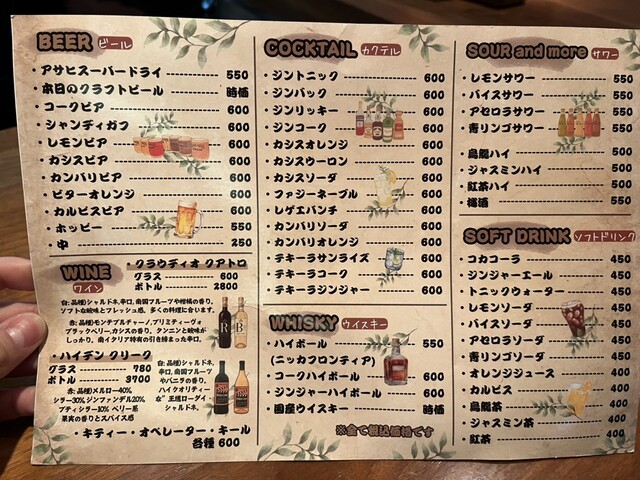 BEER ビール
・アサヒスーパードライ 550
・本日のクラフトビール 時価
・コークビア 600
・シャンディガフ 600
・レモンビア 600
・カシスビア 600
・カンパリビア 600
・ビターオレンジ 600
・カルピスビア 600
・ホッピー 550
・中 250
WINE ワイン
・クラウディオ クアトロ
グラス 600
ボトル 2800
白:品種)シャルドネ、辛口、南国フルーツや柑橘の香り。
ソフトな酸味とフレッシュ感、多くの料理に合います。
赤:品種)モンテプルチャーノ、プリミティーヴォ
ブラックベリー、カシスの香り。タンニンと酸味が
しっかり、南イタリア特有の引き締まった辛口。
・ハイデン クリーク
グラス 780
ボトル 3700
赤:品種)メルロー40%
シラー30%ジンファンデル20%
プティシラー10% ベリー系
果実の香りとスパイス感
白:品種)シャルドネ、
辛口、南国フルーツ
やバニラの香り。
ハイクオリティー
な"王道ローダイ・
シャルドネ。
・キティー・オペレーター・キール
各種 600
COCKTAIL カクテル
・ジントニック 600
・ジンバック 600
・ジンリッキー 600
・ジンコーク 600
・カシスオレンジ 600
・カシスウーロン 600
・カシスソーダ 600
・ファジーネーブル 600
・レゲエパンチ 600
・カンパリソーダ 600
・カンパリオレンジ 600
・テキーラサンライズ 600
・テキーラコーク 600
・テキーラジンジャー 600
WHISKY ウイスキー
・ハイボール 550
(ニッカフロンティア)
・コークハイボール 600
・ジンジャーハイボール 600
・国産ウイスキー 時価
※全て税込価格です
SOUR and more サワー
・レモンサワー 550
・バイスサワー 550
・アセロラサワー 550
・青リンゴサワー 550
・烏龍ハイ 500
・ジャスミンハイ 500
・紅茶ハイ 500
・梅酒 550
SOFT DRINK ソフトドリンク
・コカコーラ 450
・ジンジャーエール 450
・トニックウォーター 450
・レモンソーダ 450
・バイスソーダ 450
・アセロラソーダ 450
・青リンゴソーダ 450
・オレンジジュース 400
・カルピス 400
・烏龍茶 400
・ジャスミン茶 400
・紅茶 400